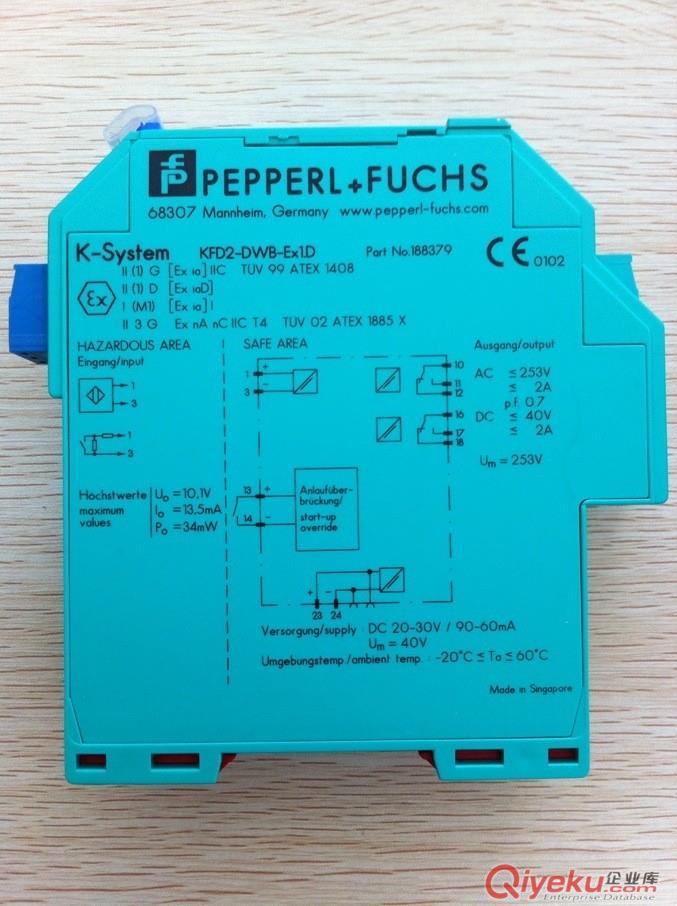 PEPPERL+FUCHS
68307 Mannheim, Germany www.pepperl-fuchs.com
K-System KFD2-DWB-Ex1.D Part No.188379 CE 0102
II (1) G [Ex ia] IIC TUV 99 ATEX 1408
II (1) D [Ex iaD]
I (M1) [Ex ia] I
II 3 G Ex nA nC IIC T4 TUV 02 ATEX 1885 X
Ex
HAZARDOUS AREA SAFE AREA Ausgang/output
Eingang/input
1
3
1
3
1 +
3 -
10
11
12
16
17
18
AC ≤ 253V
≤ 2A
p.f. 0.7
DC ≤ 40V
≤ 2A
Um = 253V
Höchstwerte
maximum
values
Uo = 10,1V
Io = 13,5mA
Po = 34mW
13 +
14 -
Anlaufüber-
brückung/
start-up
override
+ -
23 24
Versorgung/supply : DC 20-30V / 90-60mA
Um = 40V
Umgebungstemp./ambient temp. : -20°C ≤ Ta ≤ 60°C
Made in Singapore
Qiyeku.com 企业库
Enterprise Database